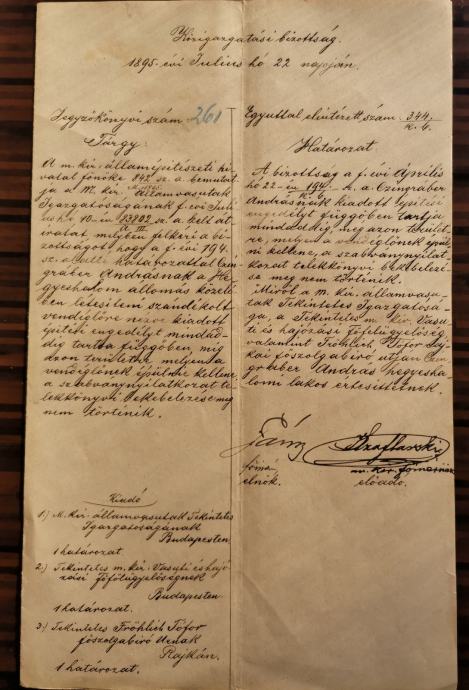 Közigazgatási bizottság.
1895. évi Julius hó 22 napján.
Jegyzőkönyvi szám 261
Tárgy:
A m. kir. államépitészeti hi-
vatal főnöke 842 sz. a. bemutat-
ja a m. kir. államvasutak
Igazgatóságának f. évi Juli-
us hó 10-én 83802 sz. a. kelt át-
A III.
iratát melyben felkéri a bi-
zottságot hogy a f. évi 194
sz. a. kelt határozattal Czin-
graber Andrásnak a He-
gyeshalom állomás közelé-
ben létesiteni szándékolt
vendéglőre nézve kiadott
épitési engedélyt mindad-
dig tartsa függőben, mig
azon területre melyen a
vendéglőnek épülnie kellene
a szabványnyilatkozat te-
lekkönyvi bekebelezése meg
nem történik.
Kiadó
1.) M. kir. államvasutak Tekintetes
Igazgatóságának
Budapesten
1 határozat
2.) Tekintetes m. kir. Vasuti és hajó-
zási Főfelügyelőségnek
Budapesten
1 határozat.
3.) Tekintetes Fröhlich Tófor
főszolgabiró Urnak
Rajkán.
1 határozat.
Egyuttal elintézett szám: 344.
K. b.
Határozat
A bizottság a f. évi Április
hó 22-én 194 K. b. a. Czingraber
Andrásnak kiadott épitési
engedélyt függőben tartja
mindaddig, mig azon terület-
re, melyen a vendéglőnek épül-
ni kellene, a szabványnyilat-
kozat telekkönyvi bekebelezé-
se meg nem történik.
Miről a m. kir. államvasu-
tak Tekintetes Igazgatósá-
ga, a Tekintetes m. kir. Vasu-
ti és hajózási főfelügyelőség
valamint Fröhlich Tófor raj-
kai főszolgabiró utján Czin-
graber András hegyesha-
lomi lakos értesittetnek.
Szaflarski
elnök.
előadó.